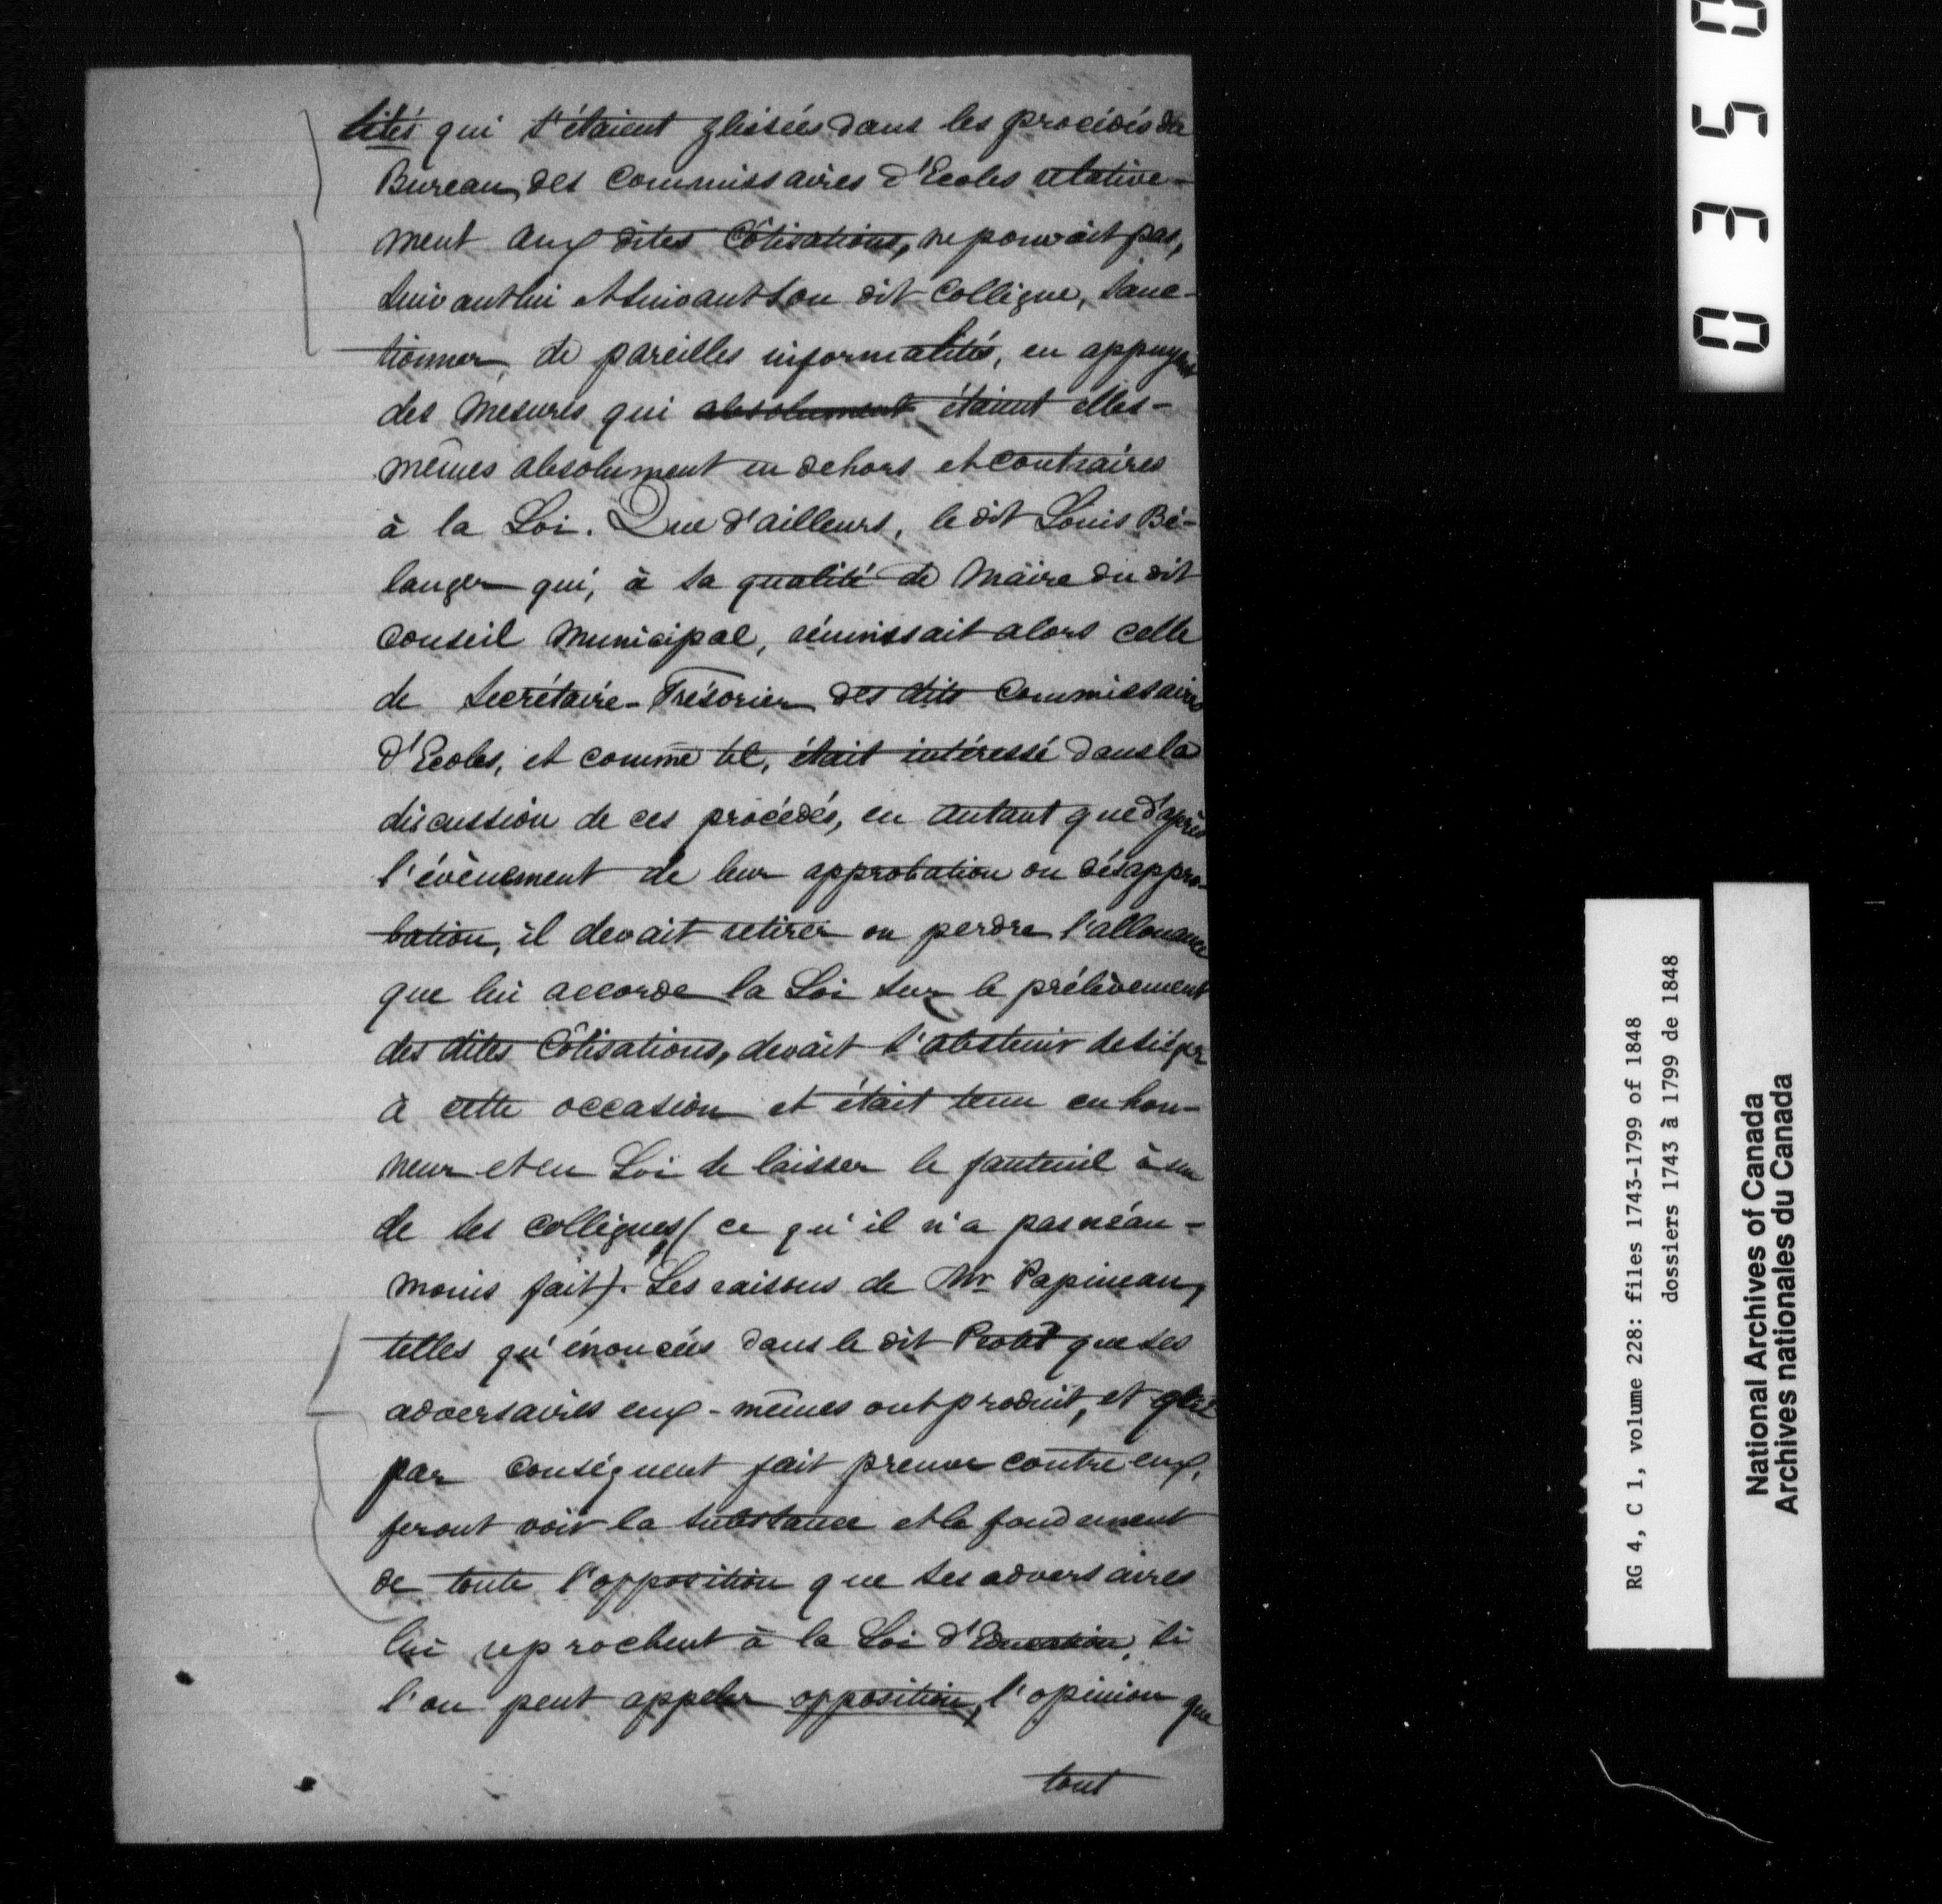 lités qui s'étaient glissées dans les procédés du
Bureau des Commissaires d'Ecoles relative-
ment aux dites Côtisations, ne pouvait pas,
suivant lui et suivant son dit Collègue, sanc-
tionner de pareilles informalités, en appuyant
des mesures qui absolument étaient elles-
mêmes absolument en dehors et contraires
à la Loi. Que d'ailleurs, le dit Louis Bé-
langer qui, à sa qualité de Maire du dit
Conseil Municipal, réunissait alors celle
de Secrétaire-Trésorier des dits Commissaires
d'Ecoles, et comme tel, était intéressé dans la
discussion de ces procédés, en autant que d'après
l'évènement de leur approbation ou désappro-
bation, il devait retirer ou perdre l'allouance
que lui accorde la Loi sur le prélèvement
des dites Côtisations, devait s'abstenir de siéger
à cette occasion et était tenu en hon-
neur et en Loi de laisser le fauteuil à un
de ses collègues (ce qu'il n'a pas néan-
moins fait). Les raisons de Mr Papineau,
telles qu'énoncées dans le dit Protêt que ses
adversaires eux-mêmes ont produit, et qui
par conséquent fait preuve contre eux,
feront voir la substance et le fondement
de toute l'opposition que ses adversaires
lui reprochent à la Loi d'Education, si
l'on peut appeler opposition, l'opinion que
tout
0350
RG 4, C 1, volume 228: files 1743-1799 of 1848
dossiers 1743 à 1799 de 1848
National Archives of Canada
Archives nationales du Canada